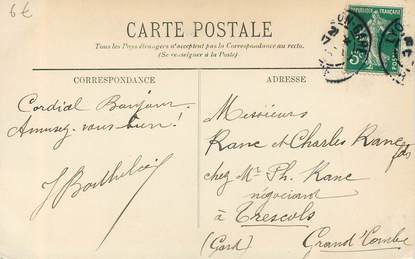 6€
CARTE POSTALE
Tous les Pays étrangers n'acceptent pas la Correspondance au recto.
(Se renseigner à la Poste)
CORRESPONDANCE
ADRESSE
Cordial Bonjour.
Amusez-vous bien!
Messieurs
Ranc et Charles Ranc fils
chez Mr Ph. Ranc
négociant
à Trescols
(Gard) Grand'Combe